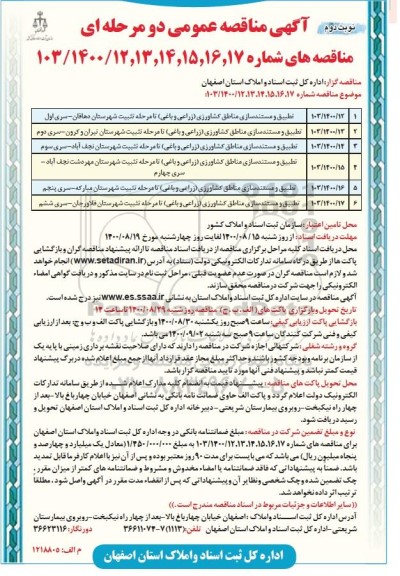 نوبت دوم
آگهی مناقصه عمومی دو مرحله ای
مناقصه های شماره ۱۰۳/۱۴۰۰/۱۲,۱۳,۱۴,۱۵,۱۶,۱۷
مناقصه گزار: اداره کل ثبت اسناد و املاک استان اصفهان
موضوع مناقصه شماره ۱۰۳/۱۴۰۰/۱۲,۱۳,۱۴,۱۵,۱۶,۱۷:
۱ ۱۰۳/۱۴۰۰/۱۲ تطبیق و مستندسازی مناطق کشاورزی (زراعی و باغی) تا مرحله تثبیت شهرستان دهاقان-سری اول
۲ ۱۰۳/۱۴۰۰/۱۳ تطبیق و مستندسازی مناطق کشاورزی (زراعی و باغی) تا مرحله تثبیت شهرستان تیران و کرون-سری دوم
۳ ۱۰۳/۱۴۰۰/۱۴ تطبیق و مستندسازی مناطق کشاورزی (زراعی و باغی) تا مرحله تثبیت شهرستان نجف آباد-سری سوم
۴ ۱۰۳/۱۴۰۰/۱۵ تطبیق و مستندسازی مناطق کشاورزی (زراعی و باغی) تا مرحله تثبیت شهرستان مهردشت نجف آباد-
سری چهارم
۵ ۱۰۳/۱۴۰۰/۱۶ تطبیق و مستندسازی مناطق کشاورزی (زراعی و باغی) تا مرحله تثبیت شهرستان مبارکه-سری پنجم
۶ ۱۰۳/۱۴۰۰/۱۷ تطبیق و مستندسازی مناطق کشاورزی (زراعی و باغی) تا مرحله تثبیت شهرستان فلاورجان-سری ششم
محل تامین اعتبار: سازمان ثبت اسناد و املاک کشور
مهلت دریافت اسناد: از روز شنبه ۱۴۰۰/۰۸/۱۵ لغایت روز چهارشنبه مورخ ۱۴۰۰/۰۸/۱۹
محل دریافت اسناد: کلیه مراحل برگزاری مناقصه از دریافت اسناد مناقصه تا ارائه پیشنهاد مناقصه گران و بازگشایی
پاکت ها از طریق درگاه سامانه تدارکات الکترونیکی دولت (ستاد) به آدرس (www.setadiran.ir) انجام خواهد
شد و لازم است مناقصه گران در صورت عدم عضویت قبلی، مراحل ثبت نام در سایت مذکور و دریافت گواهی امضای
الکترونیکی را جهت شرکت در مناقصه محقق سازند.
آگهی مناقصه در سایت اداره کل ثبت اسناد و املاک استان به نشانی www.es.ssaa.ir نیز درج شده است.
تاریخ تحویل و بارگزاری پاکت های (الف، ب، ج): مناقصه روز شنبه ۱۴۰۰/۰۸/۲۹ تا ساعت ۱۴
بازگشایی پاکت ارزیابی کیفی: ساعت ۹ صبح روز یکشنبه ۱۴۰۰/۰۸/۳۰ و بازگشایی پاکت الف و ب و ج، بعد از ارزیابی
کیفی و فنی شرکت کنندگان ساعت ۹ صبح سه شنبه ۱۴۰۰/۰۹/۰۲ می باشد.
گروه و رشته شغلی: شرکتهائی اجازه شرکت در مناقصه را دارند که دارای صلاحیت نقشه برداری زمینی با پایه یک
از سازمان برنامه و بودجه کشور باشند و حداکثر مبلغ مجاز عقد قرارداد آنها از جمع مبلغ اعلام شده در برگ پیشنهاد
قیمت کمتر نباشد و پیشنهاد فنی آنها مورد تایید مناقصه گزار باشد.
محل تحویل پاکت های مناقصه: پیشنهاد قیمت به انضمام کلیه مدارک اعلام شده از طریق سامانه تدارکات
الکترونیک دولت اعلام گردد و پاکت الف حاوی ضمانت نامه بانکی به نشانی اصفهان خیابان چهارباغ بالا-بعد از
چهارراه نیکبخت-روبروی بیمارستان شریعتی-دبیرخانه اداره کل ثبت اسناد و املاک استان اصفهان تحویل و
رسید دریافت شود.
نوع و مبلغ تضمین شرکت در مناقصه: مبلغ ضمانتنامه بانکی در وجه اداره کل ثبت اسناد و املاک استان اصفهان
برای مناقصه های شماره ۱۰۳/۱۴۰۰/۱۲,۱۳,۱۴,۱۵,۱۶,۱۷ به مبلغ ۱/۴۵۰/۰۰۰/۰۰۰ (معادل یک میلیارد و چهارصد و
پنجاه میلیون ریال) می باشد که می بایست برای مدت ۹۰ روز معتبر بوده و پس از آن نیز با اعلام کارفرما قابل تمدید
باشد. ضمنا به پیشنهاداتی که فاقد ضمانتنامه یا امضاء مخدوش و مشروط و ضمانتنامه های کمتر از میزان مقرر،
چک تضمین شده و چک شخصی و نظایر آن و همچنین پیشنهاداتی که پس از انقضاء مدت مقرر در آگهی واصل شود. مطلقا
ترتیب اثر داده نخواهد شد.
((سایر اطلاعات و جزئیات مربوط در اسناد مناقصه مندرج است.))
آدرس اداره کل ثبت اسناد و املاک: اصفهان خیابان چهارباغ بالا-بعد از چهارراه نیکبخت-روبروی بیمارستان
شریعتی-اداره کل ثبت اسناد و املاک استان اصفهان تلفن: (۱۱۱۳) ۷-۳۶۶۱۱۰۷۴ دورنگار: ۳۶۶۲۳۱۱۶
اداره کل ثبت اسناد و املاک استان اصفهان
م الف: ۱۲۱۸۸۰۵